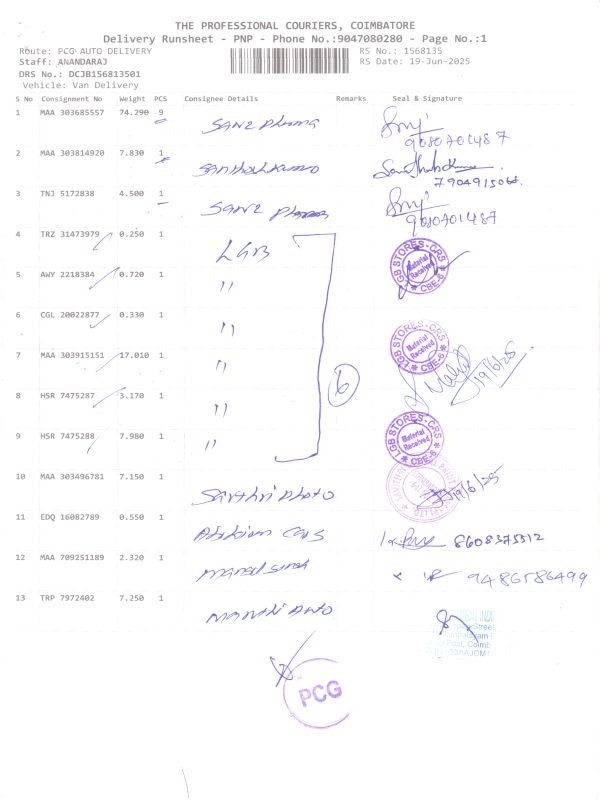 THE PROFESSIONAL COURIERS, COIMBATORE
Delivery Runsheet - PNP - Phone No.:9047080280 - Page No.:1
Route: PCG AUTO DELIVERY RS No.: 1568135
Staff: ANANDARAJ RS Date: 19-Jun-2025
DRS No.: DCJB156813501
Vehicle: Van Delivery
S No Consignment No Weight PCS Consignee Details Remarks Seal & Signature
1 MAA 303685557 74.290 9 Sanz Pharma
9080701487
2 MAA 303814920 7.830 1 Santhoshkumar
3 TNJ 5172838 4.500 1 Sanz Pharma
9080701487
4 TRZ 31473979 0.250 1 LGB LGB STORES-CRS Material Received CBE-6
5 AWY 2218384 0.720 1 "
6 CGL 20022877 0.330 1 " LGB STORES-CRS Material Received CBE-6
7 MAA 303915151 17.010 1 " 19/6/25
6
8 HSR 7475287 3.170 1 "
9 HSR 7475288 7.980 1 " LGB STORES-CRS Material Received CBE-6
10 MAA 303496781 7.150 1 Photo 19/6/25
11 EDQ 16082789 0.550 1 Cars 8608375512
12 MAA 709251189 2.320 1 9486586499
13 TRP 7972402 7.250 1 Maruthi Auto
PCG